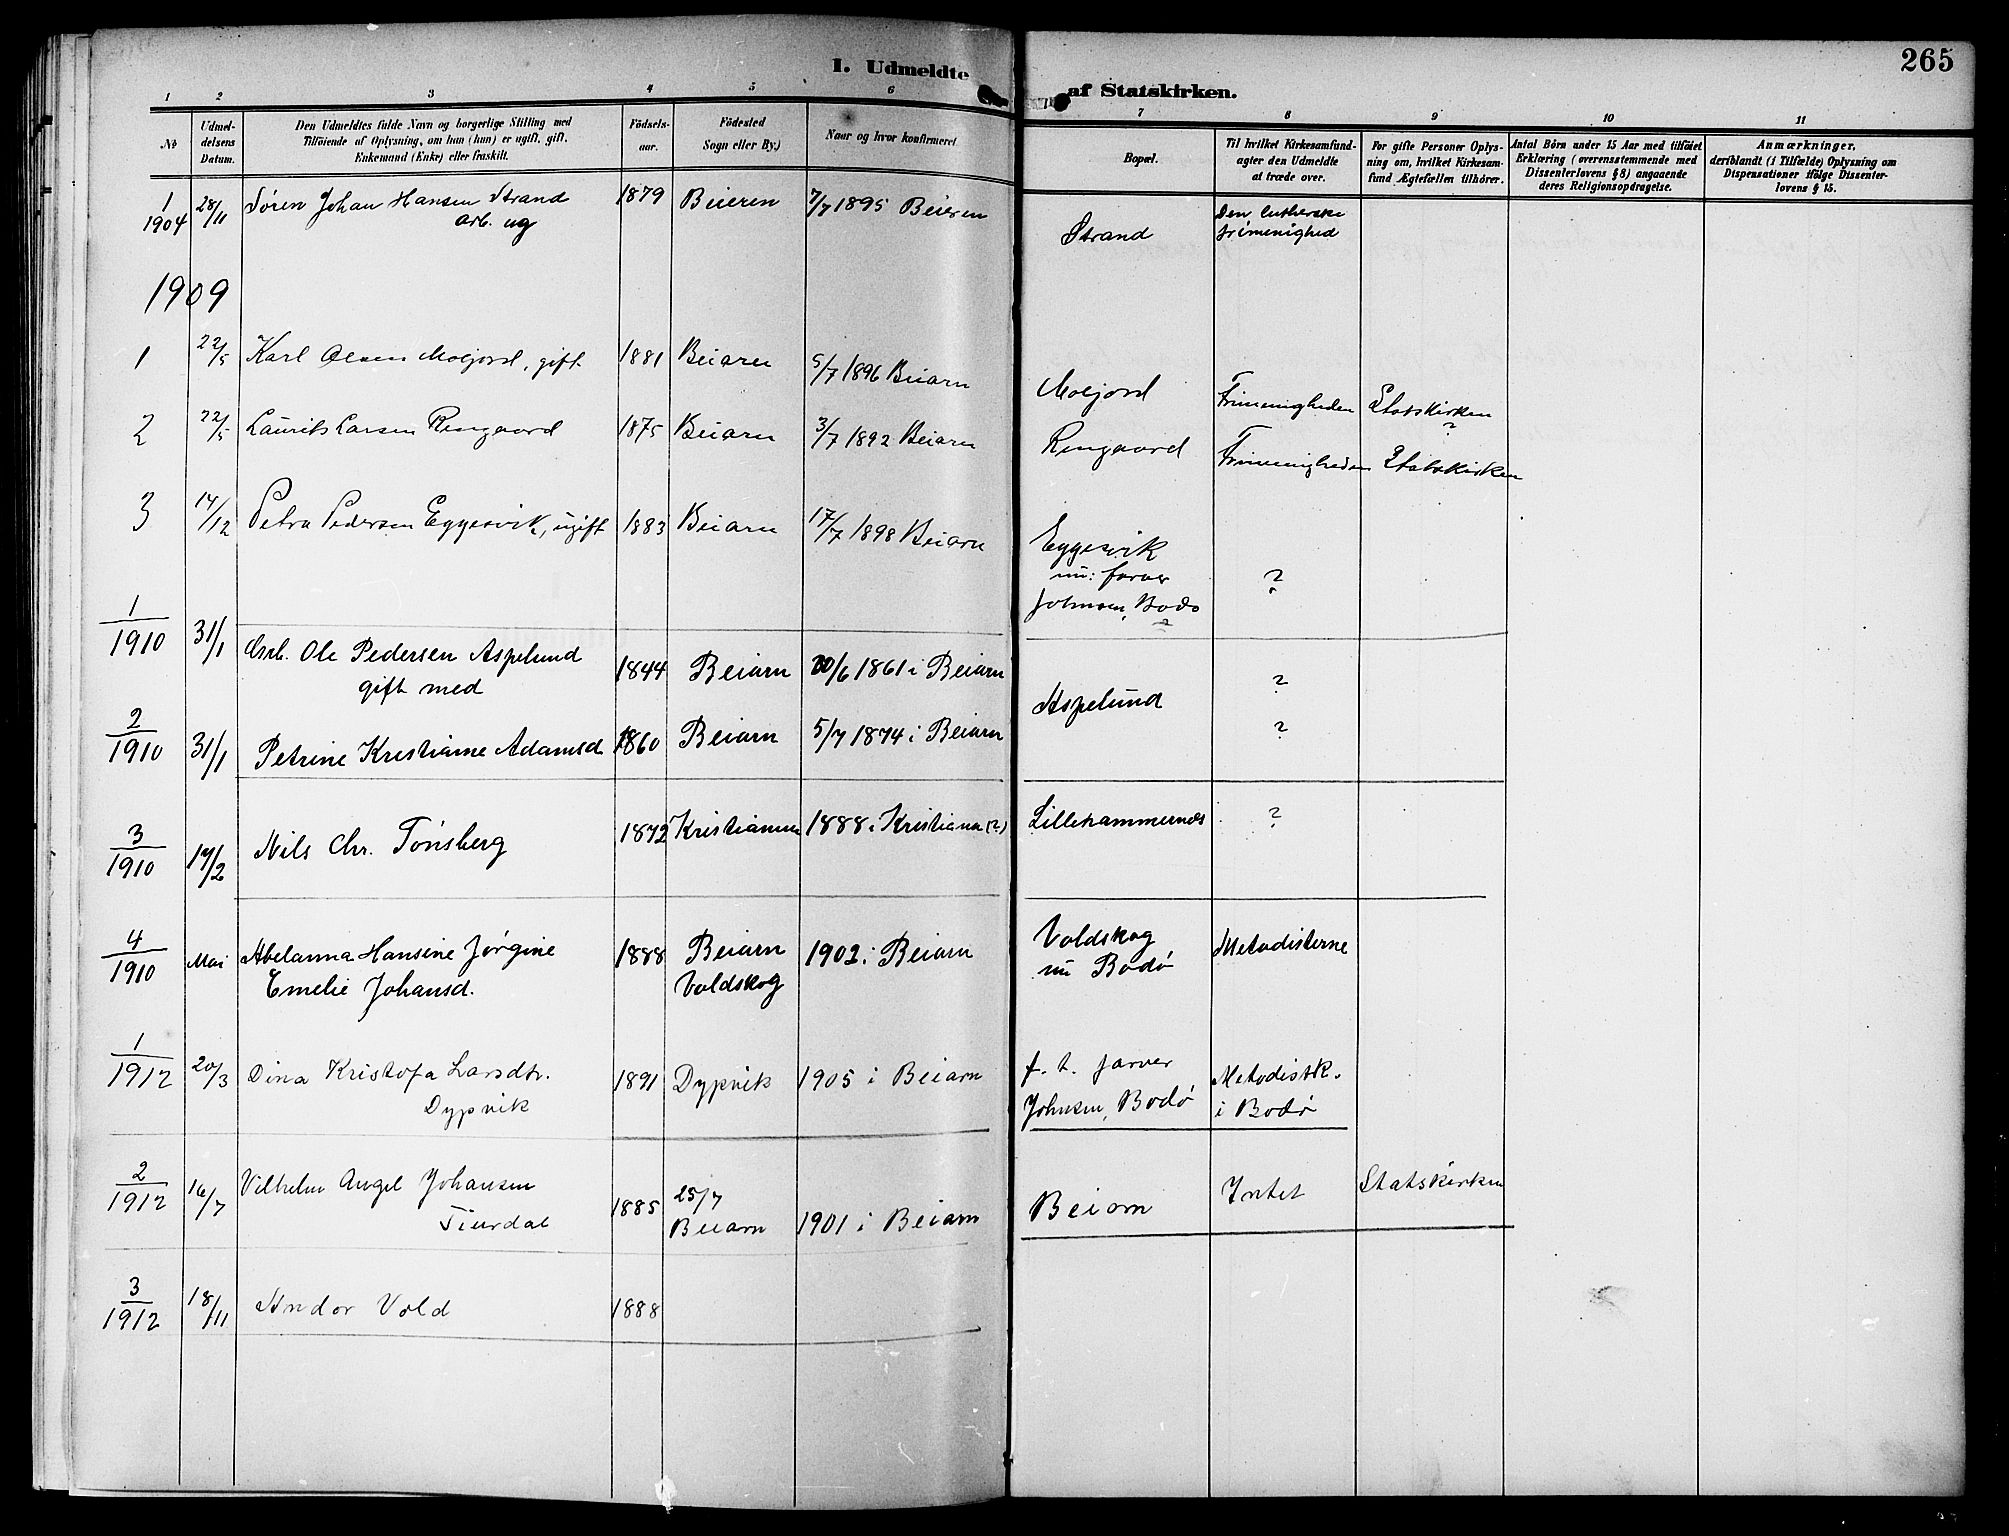 265
1. Udmeldte af Statskirken.
1 2 3 4 5 6 7 8 9 10 11
No
Udmeldelsens Datum.
Den Udmeldtes fulde Navn og borgerlige Stilling med
Tilföiende af Oplysning, om han (hun) er ugift, gift,
Enkemand (Enke) eller fraskilt.
Födselsaar.
Födested
Sogn eller By.)
Naar og hvor konfirmeret
Bopæl.
Til hvilket Kirkesamfund
agter den Udmeldte
at træde over.
For gifte Personer Oplysning
om, hvilket Kirkesamfund
Ægtefællen tilhörer.
Antal Börn under 15 Aar med tilföiet
Erklæring (overensstemmende med
Dissenterlovens § 8) angaaende
deres Religionsopdragelse.
Anmærkninger,
deriblandt (i Tilfælde) Oplysning om
Dispensationer ifölge Dissenterlovens § 15.
1/1904 28/11 Søren Johan Hansen Strand 1879 Beieren 7/7 1895 Beieren Strand Den lutherske
arb. ug frimenighed
1909
1 22/5 Karl Olsen Moljord, gift 1881 Beiarn 5/7 1896 Beiarn Moljord Frimenigheden Statskirken
?
2 22/5 Laurits Larsen Rengaard 1875 Beiarn 3/7 1892 Beiarn Rengaard Frimenigheden Statskirken
3 14/12 Petra Pedersen Eggesvik, ugift 1883 Beiarn 17/7 1898 Beiarn Eggesvik ?
nu: farver
Johnsen, Bodø
?
1/1910 31/1 Arb. Ole Pedersen Aspelund 1844 Beiarn 30/6 1861 i Beiarn Aspelund ?
gift med
2/1910 31/1 Petrine Kristianne Adamsd 1860 Beiarn 5/7 1874 i Beiarn ?
3/1910 17/2 Nils Chr. Tønsberg 1872 Kristiania 1888 i Kristiania (?) Lillehammernes ?
4/1910 Mai Abelanna Hansine Jørgine 1888 Beiarn 1902 i Beiarn Voldskog Metodisterne
Emelie Johansd. Voldskog nu Bodø
1/1912 20/3 Dina Kristofa Larsdtr. 1891 Dypvik 1905 i Beiarn f. t. farver Metodistk.
Dypvik Johnsen, Bodø i Bodø
2/1912 16/7 Vilhelm Angel Johansen 1885 25/7 1901 i Beiarn Beiarn Intet Statskirken
Beiarn
3/1912 18/11 Andor Vold 1888